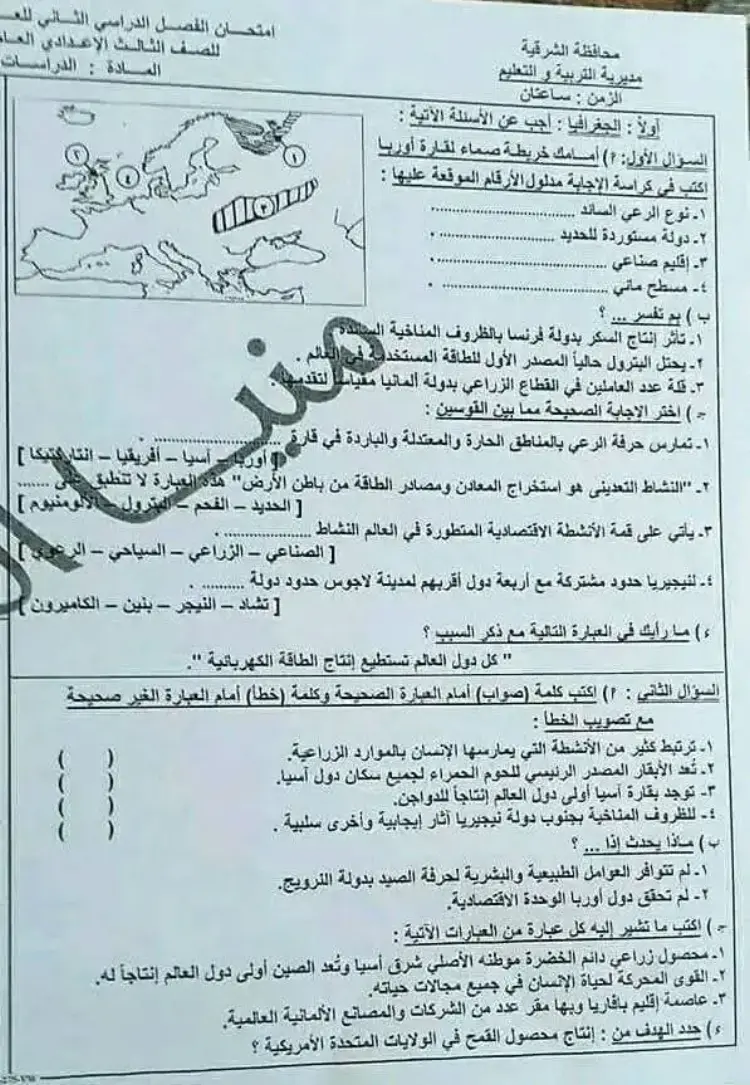 محافظة الشرقية
مديرية التربية و التعليم
الزمن : ساعتان
امتحان الفصل الدراسي الثاني للعـ
للصف الثالث الإعدادي العام
المادة : الدراسات
أولاً : الجغرافيا : أجب عن الأسئلة الآتية :
السؤال الأول: ٢) أمامك خريطة صماء لقارة أوربا
اكتب في كراسة الإجابة مدلول الأرقام الموقعة عليها :
١- نوع الرعي السائد ..............................
٢- دولة مستوردة للحديد .............................. .
٣- إقليم صناعي ..............................
٤- مسطح مائي .............................. .
١
٢
٣
٤
ب ) بم تفسر ... ؟
١- تأثر إنتاج السكر بدولة فرنسا بالظروف المناخية السائدة
٢- يحتل البترول حالياً المصدر الأول للطاقة المستخدمة في العالم .
٣- قلة عدد العاملين في القطاع الزراعي بدولة ألمانيا مقياساً لتقدمها .
جـ ) اختر الإجابة الصحيحة مما بين القوسين :
١- تمارس حرفة الرعي بالمناطق الحارة والمعتدلة والباردة في قارة .................... .
[ أوربا – آسيا – أفريقيا – انتاركتيكا ]
٢- "النشاط التعديني هو استخراج المعادن ومصادر الطاقة من باطن الأرض" هذه العبارة لا تنطبق على ......
[ الحديد – الفحم – البترول – الألومنيوم ]
٣- يأتي على قمة الأنشطة الاقتصادية المتطورة في العالم النشاط .............. .
[ الصناعي – الزراعي – السياحي – الرعوي ]
٤- لنيجيريا حدود مشتركة مع أربعة دول أقربهم لمدينة لاجوس حدود دولة ......... .
[ تشاد – النيجر – بنين – الكاميرون ]
ء) ما رأيك في العبارة التالية مع ذكر السبب ؟
" كل دول العالم تستطيع إنتاج الطاقة الكهربائية ".
السؤال الثاني : ٢) اكتب كلمة (صواب) أمام العبارة الصحيحة وكلمة (خطأ) أمام العبارة الغير صحيحة
مع تصويب الخطأ :
١- ترتبط كثير من الأنشطة التي يمارسها الإنسان بالموارد الزراعية. ( )
٢- تُعد الأبقار المصدر الرئيسي للحوم الحمراء لجميع سكان دول آسيا. ( )
٣- توجد بقارة آسيا أولى دول العالم إنتاجاً للدواجن. ( )
٤- للظروف المناخية بجنوب دولة نيجيريا آثار إيجابية وأخرى سلبية . ( )
ب) ماذا يحدث إذا ... ؟
١- لم تتوافر العوامل الطبيعية والبشرية لحرفة الصيد بدولة النرويج.
٢- لم تحقق دول أوربا الوحدة الاقتصادية.
جـ ) اكتب ما تشير إليه كل عبارة من العبارات الآتية :
١- محصول زراعي دائم الخضرة موطنه الأصلي شرق آسيا وتُعد الصين أولى دول العالم إنتاجاً له.
٢- القوى المحركة لحياة الإنسان في جميع مجالات حياته.
٣- عاصمة إقليم بافاريا وبها مقر عدد من الشركات والمصانع الألمانية العالمية.
ء) حدد الهدف من : إنتاج محصول القمح في الولايات المتحدة الأمريكية ؟